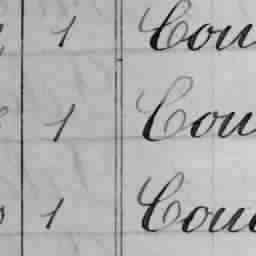 1 Cou
1 Cou
1 Cou